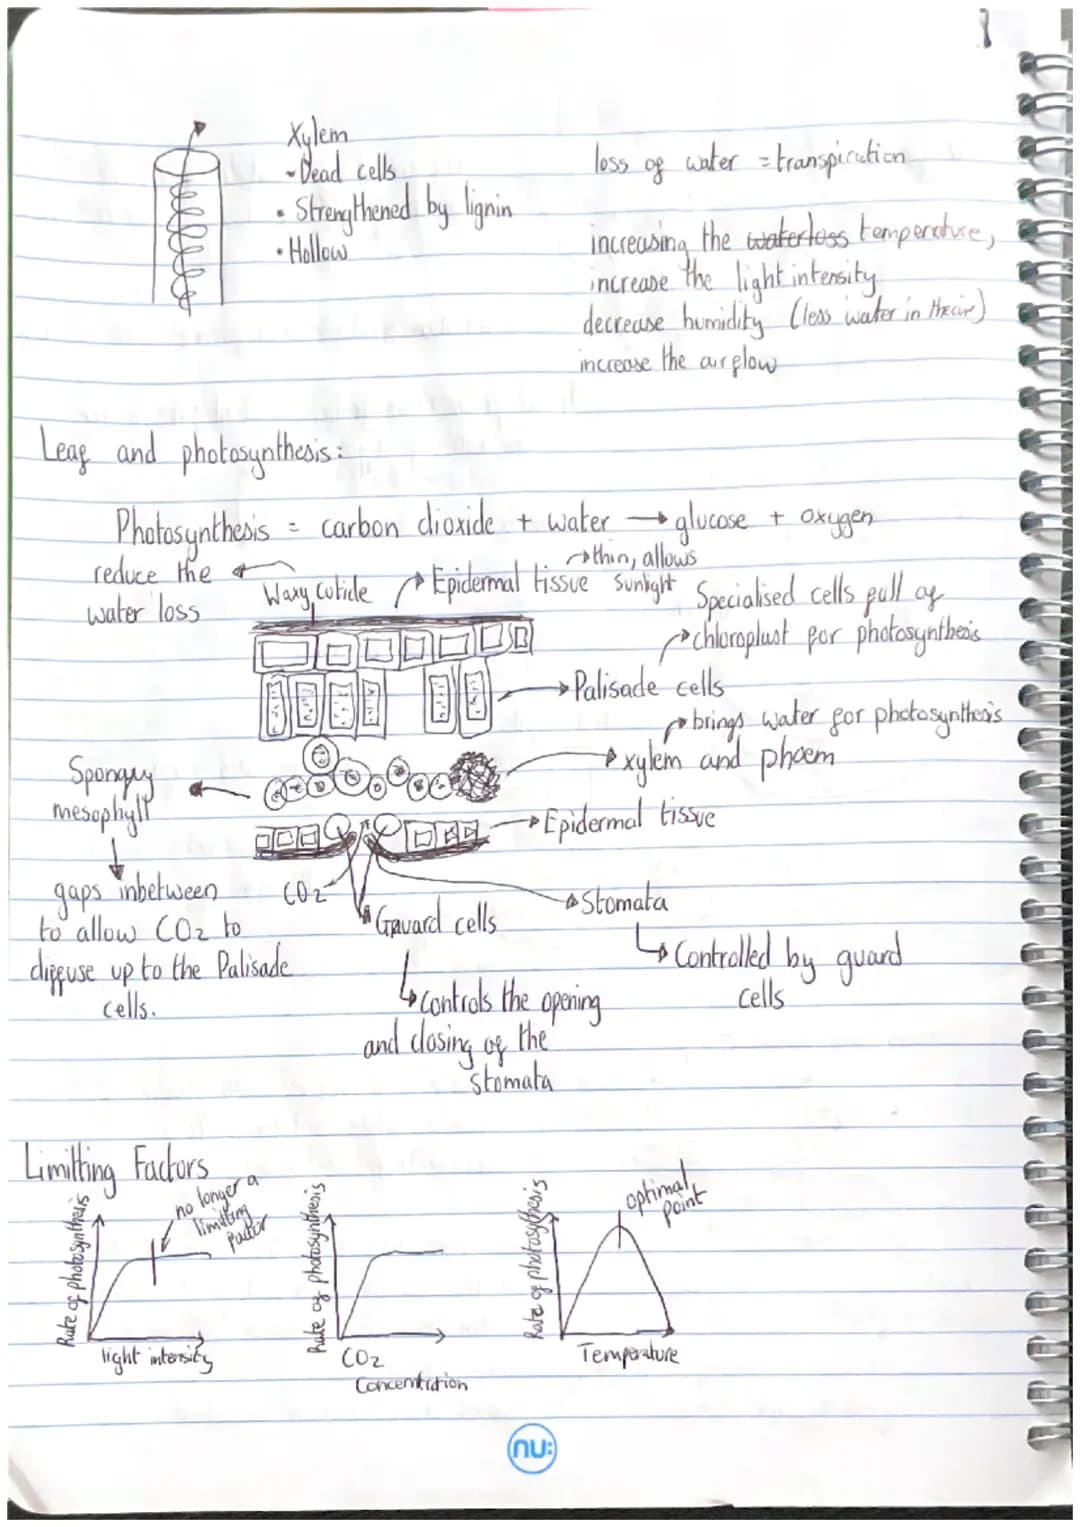 Xylem
• Dead cells
• Strengthened by lignin
• Hollow
loss of water = transpiration
increasing the waterloss temperature,
increase the light intensity
decrease humidity (less water in the air)
increase the airflow
Leaf and photosynthesis:
Photosynthesis = carbon dioxide + water → glucose + oxygen
reduce the
water loss
Waxy cuticle
Epidermal tissue
→ thin, allows
sunlight
Specialised cells full of
chloroplast for photosynthesis
Palisade cells
brings water for photosynthesis
xylem and phoem
Spongy
mesophyll
Epidermal tissue
gaps inbetween
to allow CO2 to
diffuse up to the Palisade
cells.
CO2
Gaurd cells
Stomata
Controlled by guard
cells
Controls the opening
and closing of the
stomata
Limitting Factors
Rate of photosynthesis
no longer a
limitting
factor
light intensity
Rate of photosynthesis
CO2
Concentration
Rate of photosythesis
optimal
point
Temperature
nu: